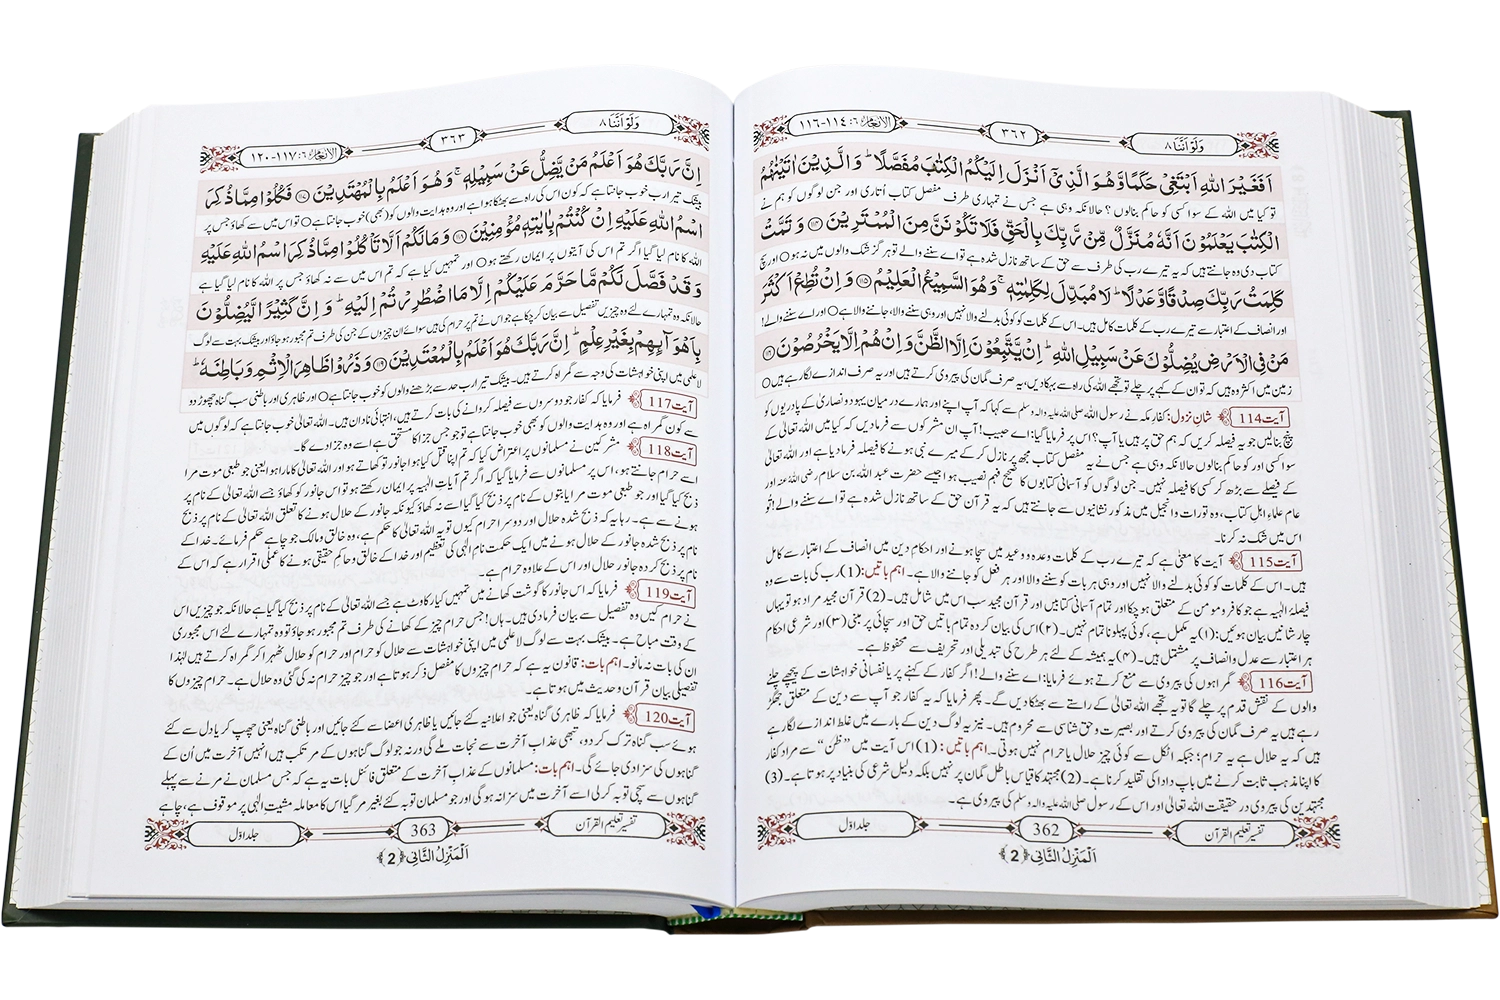 وَلَوْ اَنَّنَا ٨
٣٦٢
الانعام ٦: ١١٤-١١٦
اَفَغَيْرَ اللّٰهِ اَبْتَغِيْ حَكَمًا وَّ هُوَ الَّذِيْۤ اَنْزَلَ اِلَيْكُمُ الْكِتٰبَ مُفَصَّلًاؕ وَ الَّذِيْنَ اٰتَيْنٰهُمُ
تو کیا میں اللہ کے سوا کسی اور کو حاکم بنالوں؟ حالانکہ وہی ہے جس نے تمہاری طرف مفصل کتاب اُتاری اور جن لوگوں کو ہم نے
الْكِتٰبَ يَعْلَمُوْنَ اَنَّهٗ مُنَزَّلٌ مِّنْ رَّبِّكَ بِالْحَقِّ فَلَا تَكُوْنَنَّ مِنَ الْمُمْتَرِيْنَ ﴿١١٤﴾ وَ تَمَّتْ
کتاب دی وہ جانتے ہیں کہ یہ تیرے رب کی طرف سے حق کے ساتھ نازل شدہ ہے تو اے سننے والے تو ہرگز شک والوں میں نہ ہو ○ اور سچ
كَلِمَتُ رَبِّكَ صِدْقًا وَّ عَدْلًاؕ لَا مُبَدِّلَ لِكَلِمٰتِهٖۚ وَ هُوَ السَّمِيْعُ الْعَلِيْمُ ﴿١١٥﴾ وَ اِنْ تُطِعْ اَكْثَرَ
اور انصاف کے اعتبار سے تیرے رب کے کلمات کامل ہیں۔ اس کے کلمات کو کوئی بدلنے والا نہیں اور وہی سننے والا، جاننے والا ہے ○ اور اے سننے والے!
مَنْ فِي الْاَرْضِ يُضِلُّوْكَ عَنْ سَبِيْلِ اللّٰهِؕ اِنْ يَّتَّبِعُوْنَ اِلَّا الظَّنَّ وَ اِنْ هُمْ اِلَّا يَخْرُصُوْنَ ﴿١١٦﴾
زمین میں اکثر وہ ہیں کہ تو ان کے کہے پر چلے تو تجھے اللہ کی راہ سے بہکا دیں، یہ صرف گمان کی پیروی کرتے ہیں اور یہ صرف اندازے لگا رہے ہیں ○
آیت 114 شانِ نزول: کفارِ مکہ نے رسول اللہ صلی اللہ علیہ والہ وسلم سے کہا کہ آپ اپنے اور ہمارے درمیان یہود و نصاریٰ کے پادریوں کو
پنچ بنالیں جو یہ فیصلہ کریں کہ ہم حق پر ہیں یا آپ؟ اس پر فرمایا گیا: اے حبیب! آپ ان مشرکوں سے فرما دیں کہ کیا میں اللہ تعالیٰ کے
سوا کسی اور کو حاکم بنالوں حالانکہ وہی ہے جس نے یہ مفصل کتاب مجھ پر نازل کر کے میرے نبی ہونے کا فیصلہ فرما دیا ہے اور اللہ تعالیٰ
کے فیصلے سے بڑھ کر کسی کا فیصلہ نہیں۔ جن لوگوں کو آسمانی کتابوں کا صحیح فہم نصیب ہوا جیسے حضرت عبد اللہ بن سلام رضی اللہ عنہ اور
عام علماءِ اہلِ کتاب، وہ تورات و انجیل میں مذکور نشانیوں سے جانتے ہیں کہ یہ قرآن حق کے ساتھ نازل شدہ ہے تو اے سننے والے! تُو
اس میں شک نہ کرنا۔
آیت 115 آیت کا معنی ہے کہ تیرے رب کے کلمات وعدہ و وعید میں سچا ہونے اور احکامِ دین میں انصاف کے اعتبار سے کامل
ہیں۔ اس کے کلمات کو کوئی بدلنے والا نہیں اور وہی ہر بات کو سننے والا اور ہر فعل کو جاننے والا ہے۔ اہم باتیں: (1) رب کی بات سے وہ
فیصلۂ الٰہیہ ہے جو کافر و مومن کے متعلق ہو چکا اور تمام آسمانی کتابیں اور قرآن مجید سب اس میں شامل ہیں۔ (2) قرآن مجید مراد ہو تو یہاں
چار شانیں بیان ہوئیں: (۱) یہ مکمل ہے، کوئی پہلو ناتمام نہیں۔ (۲) اس کی بیان کردہ تمام باتیں حق اور سچائی پر مبنی (۳) اور شرعی احکام
ہر اعتبار سے عدل و انصاف پر مشتمل ہیں۔ (۴) یہ ہمیشہ کے لئے ہر طرح کی تبدیلی اور تحریف سے محفوظ ہے۔
آیت 116 گمراہوں کی پیروی سے منع کرتے ہوئے فرمایا: اے سننے والے! اگر کفار کے کہنے پر یا نفسانی خواہشات کے پیچھے چلنے
والوں کے نقش قدم پر چلے گا تو یہ تجھے اللہ تعالیٰ کے راستے سے بھٹکا دیں گے۔ پھر فرمایا کہ یہ کفار جو آپ سے دین کے متعلق جھگڑ
رہے ہیں یہ صرف گمان کی پیروی کرتے اور بصیرت و حق شناسی سے محروم ہیں۔ نیز یہ لوگ دین کے بارے میں غلط اندازے لگا رہے
ہیں کہ یہ حلال ہے یہ حرام؛ جبکہ اٹکل سے کوئی چیز حلال یا حرام نہیں ہوتی۔ اہم باتیں: (1) اس آیت میں ”ظن“ سے مراد کفار
کا اپنا مذہب ثابت کرنے میں باپ دادا کی تقلید کرنا ہے۔ (2) مجتہد کا قیاس باطل گمان پر نہیں بلکہ دلیل شرعی کی بنیاد پر ہوتا ہے۔ (3)
مجتہدین کی پیروی در حقیقت اللہ تعالیٰ اور اس کے رسول صلی اللہ علیہ والہ وسلم کی پیروی ہے۔
تفسیر تعلیم القرآن
362
جلد اوّل
اَلْمَنْزِلُ الثَّانِي ﴿2﴾
وَلَوْ اَنَّنَا ٨
٣٦٣
الانعام ٦: ١١٧-١٢٠
اِنَّ رَبَّكَ هُوَ اَعْلَمُ مَنْ يَّضِلُّ عَنْ سَبِيْلِهٖۚ وَ هُوَ اَعْلَمُ بِالْمُهْتَدِيْنَ ﴿١١٧﴾ فَكُلُوْا مِمَّا ذُكِرَ
بیشک تیرا رب خوب جانتا ہے کہ کون اس کی راہ سے بھٹکا ہوا ہے اور وہ ہدایت والوں کو (بھی) خوب جانتا ہے ○ تو اس میں سے کھاؤ جس پر
اسْمُ اللّٰهِ عَلَيْهِ اِنْ كُنْتُمْ بِاٰيٰتِهٖ مُؤْمِنِيْنَ ﴿١١٨﴾ وَ مَا لَكُمْ اَلَّا تَاْكُلُوْا مِمَّا ذُكِرَ اسْمُ اللّٰهِ عَلَيْهِ
اللہ کا نام لیا گیا اگر تم اس کی آیتوں پر ایمان رکھتے ہو ○ اور تمہیں کیا ہے کہ تم اس میں سے نہ کھاؤ جس پر اللہ کا نام لیا گیا ہے
وَ قَدْ فَصَّلَ لَكُمْ مَّا حَرَّمَ عَلَيْكُمْ اِلَّا مَا اضْطُرِرْتُمْ اِلَيْهِؕ وَ اِنَّ كَثِيْرًا لَّيُضِلُّوْنَ
حالانکہ وہ تمہارے لئے وہ چیزیں تفصیل سے بیان کر چکا ہے جو اس نے تم پر حرام کی ہیں سوائے ان چیزوں کے جن کی طرف تم مجبور ہو جاؤ اور بیشک بہت سے لوگ
بِاَهْوَآىِٕهِمْ بِغَيْرِ عِلْمٍؕ اِنَّ رَبَّكَ هُوَ اَعْلَمُ بِالْمُعْتَدِيْنَ ﴿١١٩﴾ وَ ذَرُوْا ظَاهِرَ الْاِثْمِ وَ بَاطِنَهٗؕ
لا علمی میں اپنی خواہشات کی وجہ سے گمراہ کرتے ہیں۔ بیشک تیرا رب حد سے بڑھنے والوں کو خوب جانتا ہے ○ اور ظاہری اور باطنی سب گناہ چھوڑ دو
آیت 117 فرمایا کہ کفار جو دوسروں سے فیصلہ کروانے کی بات کرتے ہیں، انتہائی نادان ہیں۔ اللہ تعالیٰ خوب جانتا ہے کہ لوگوں میں
سے کون گمراہ ہے اور وہ ہدایت والوں کو بھی خوب جانتا ہے تو جو جس جزا کا مستحق ہے اسے وہ جزا دے گا۔
آیت 118 مشرکین نے مسلمانوں پر اعتراض کیا کہ تم اپنا قتل کیا ہوا جانور تو کھاتے ہو اور اللہ تعالیٰ کا مارا ہوا یعنی جو طبعی موت مرا
اسے حرام جانتے ہو، اس پر مسلمانوں سے فرمایا گیا کہ اگر تم آیاتِ الٰہیہ پر ایمان رکھتے ہو تو اس جانور کو کھاؤ جسے اللہ تعالیٰ کے نام پر
ذبح کیا گیا اور جو طبعی موت مرا یا بتوں کے نام پر ذبح کیا گیا اسے نہ کھاؤ کیونکہ جانور کے حلال ہونے کا تعلق اللہ تعالیٰ کے نام پر ذبح
ہونے سے ہے۔ رہا یہ کہ ذبح شدہ حلال اور دوسرا حرام کیوں تو یہ اللہ تعالیٰ کا حکم ہے، وہ خالق و مالک جو چاہے حکم فرمائے۔ خدا کے
نام پر ذبح شدہ جانور کے حلال ہونے میں ایک حکمت نام الٰہی کی تعظیم اور خدا کے خالق و حاکم حقیقی ہونے کا عملی اقرار ہے کہ اس کے
نام پر ذبح کردہ جانور حلال اور اس کے علاوہ حرام ہے۔
آیت 119 فرمایا کہ اس جانور کا گوشت کھانے میں تمہیں کیا رکاوٹ ہے جسے اللہ تعالیٰ کے نام پر ذبح کیا گیا ہے حالانکہ جو چیزیں اس
نے حرام کیں وہ تفصیل سے بیان فرما دی ہیں۔ ہاں! جس حرام چیز کے کھانے کی طرف تم مجبور ہو جاؤ تو وہ تمہارے لئے اس مجبوری
کے وقت مباح ہے۔ بیشک بہت سے لوگ لاعلمی میں اپنی خواہشات سے حلال کو حرام اور حرام کو حلال ٹھہرا کر گمراہ کرتے ہیں لہٰذا
ان کی بات نہ مانو۔ اہم بات: قانون یہ ہے کہ حرام چیزوں کا مفصل ذکر ہوتا ہے اور جو چیز حرام نہ کی گئی وہ حلال ہے۔ حرام چیزوں کا
تفصیلی بیان قرآن و حدیث میں ہوتا ہے۔
آیت 120 فرمایا کہ ظاہری گناہ یعنی جو اعلانیہ کئے جائیں یا ظاہری اعضا سے کئے جائیں اور باطنی گناہ یعنی چھپ کر یا دل سے کئے
ہوئے سب گناہ ترک کر دو، تبھی عذابِ آخرت سے نجات ملے گی ورنہ جو لوگ گناہوں کے مرتکب ہیں انہیں آخرت میں اُن کے
گناہوں کی سزا دی جائے گی۔ اہم بات: مسلمانوں کے عذابِ آخرت کے متعلق فائنل بات یہ ہے کہ جس مسلمان نے مرنے سے پہلے
گناہوں سے سچی توبہ کرلی اسے آخرت میں سزا نہ ہو گی اور جو مسلمان توبہ کئے بغیر مر گیا اس کا معاملہ مشیتِ الٰہی پر موقوف ہے، چاہے
تفسیر تعلیم القرآن
363
جلد اوّل
اَلْمَنْزِلُ الثَّانِي ﴿2﴾